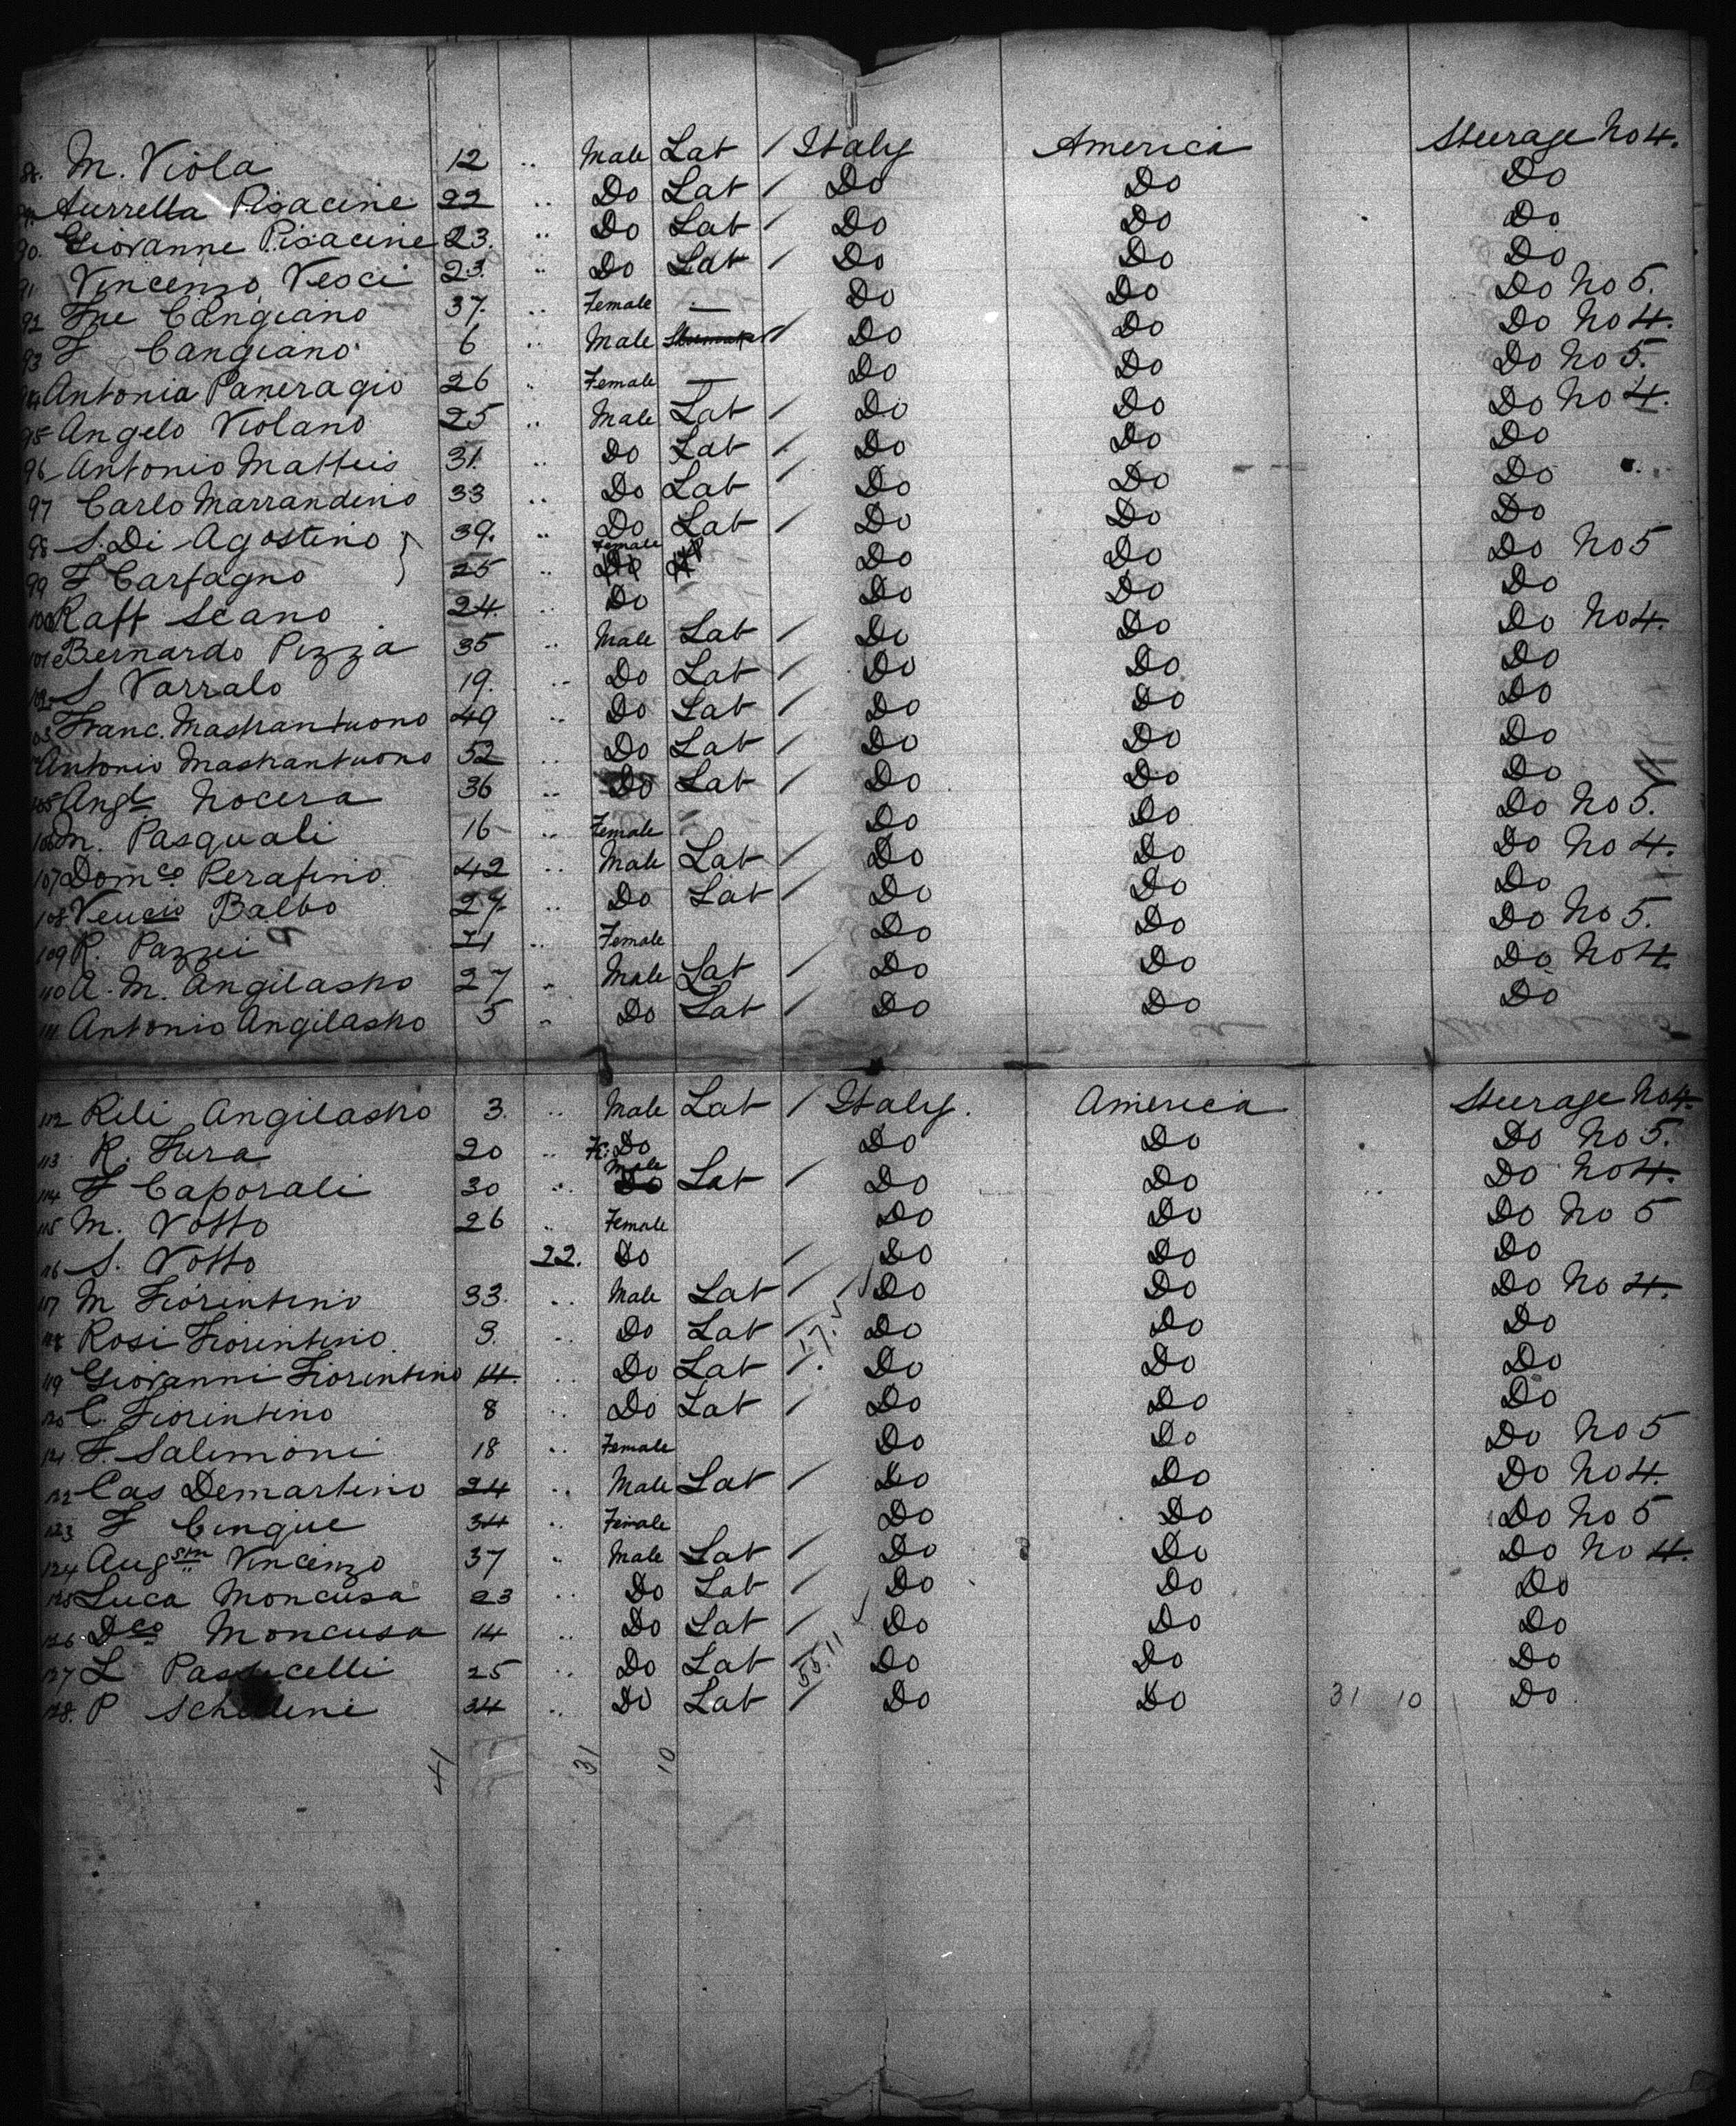 88. M. Viola 12 .. Male Lab / Italy America Steerage No 4.
89. Aurrella Pisacine 22 .. Do Lab / Do Do Do
90. Giovanne Pisacine 23. .. Do Lab / Do Do Do
91 Vincenzo Vesci 23. .. Do Lab / Do Do Do
92 Fue Cangiano 37. .. Female — Do Do Do No 5.
93 F Cangiano 6 .. Male / Do Do Do No 4.
94 Antonia Paneragio 26 .. Female — Do Do Do No 5.
95 Angelo Violano 25 .. Male Lab / Do Do Do No 4.
96 Antonio Matteis 31. .. Do Lab / Do Do Do
97 Carlo Marrandino 33 .. Do Lab / Do Do Do
98 S. Di Agostino } 39. .. Do Lab / Do Do Do
99 F Carfagno } 25 .. Female Do Do Do No 5
100 Raff Scano 24. .. Do Do Do Do
101 Bernardo Pizza 35 .. Male Lab / Do Do Do No 4.
102 S Varralo 19. .. Do Lab / Do Do Do
103 Franc. Mastrantuono 49 .. Do Lab / Do Do Do
104 Antonio Mastrantuono 52 .. Do Lab / Do Do Do
105 Angle Nocera 36 .. Do Lab / Do Do Do
106 M. Pasquali 16 .. Female Do Do Do No 5.
107 Domco Perafino 42 .. Male Lab / Do Do Do No 4.
108. Balbo 29. .. Do Lab / Do Do Do
109 R. Pazzei 21 .. Female Do Do Do No 5.
110 A. M. Angilastro 27 .. Male Lab / Do Do Do No 4.
111 Antonio Angilastro 5 .. Do Lab / Do Do Do
112 Rili Angilastro 3. .. Male Lab / Italy. America Steerage No 4.
113 R. Fura 20 .. Fe Do Do Do Do No 5.
114 F Caporali 30 .. Male Do Lab / Do Do Do No 4.
115 M. Votto 26 .. Female Do Do Do No 5
116 S. Votto 22. Do / Do Do Do
117 M Fiorintino 33. .. Male Lab / Do Do Do No 4.
118 Rosi Fiorintino. 9. .. Do Lab / Do Do Do
119 Giovanni Fiorintino 14. .. Do Lab / Do Do Do
120 C. Fiorintino 8 .. Do Lab / Do Do Do
121. F. Salimoni 18 .. Female Do Do Do No 5
122 Cas Demartino 24 .. Male Lab / Do Do Do No 4.
123 F Cinque 34 .. Female Do Do Do No 5
124 Augstn Vincenzo 37 .. Male Lab / Do Do Do No 4.
125 Luca Moncusa 23 .. Do Lab / Do Do Do
126 Dco Moncusa 14 .. Do Lab / Do Do Do
127 L 25 .. Do Lab / 55.11 Do Do Do
128. P 34 .. Do Lab / Do Do 31 10 Do
41 31 10